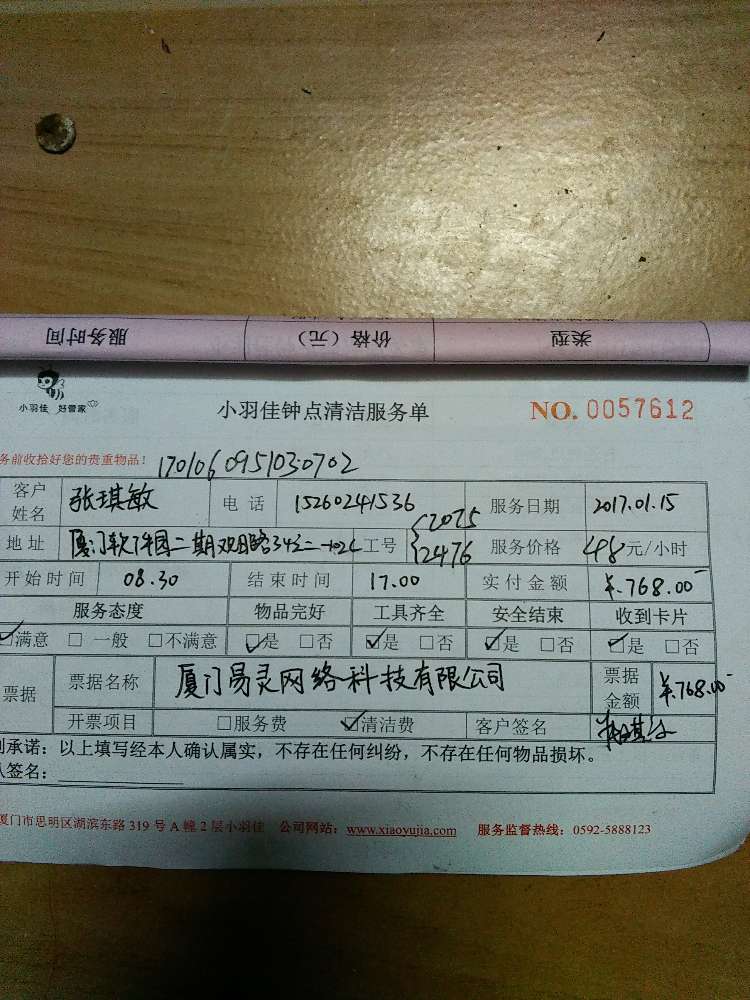 服务时间 价格（元） 类型
小羽佳 好管家
小羽佳钟点清洁服务单 NO. 0057612
务前收拾好您的贵重物品！ 1701060951030702
客户姓名 张琪敏 电话 15260241536 服务日期 2017.01.15
地址 厦门软件园二期观日路34 工号 2075 2476 服务价格 48元/小时
开始时间 08.30 结束时间 17.00 实付金额 ¥.768.00
服务态度 物品完好 工具齐全 安全结束 收到卡片
☑满意 □一般 □不满意 ☑是 □否 ☑是 □否 ☑是 □否 ☑是 □否
票据 票据名称 厦门易灵网络科技有限公司 票据金额 ¥.768.00
开票项目 □服务费 ☑清洁费 客户签名
承诺：以上填写经本人确认属实，不存在任何纠纷，不存在任何物品损坏。
人签名：
厦门市思明区湖滨东路 319 号 A 幢 2 层小羽佳 公司网站：www.xiaoyujia.com 服务监督热线：0592-5888123